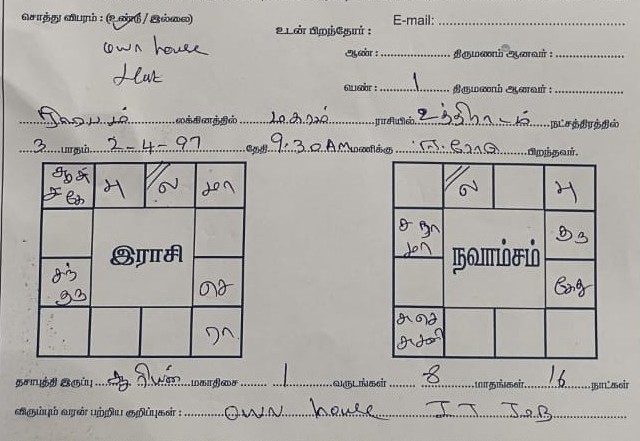 சொத்து விபரம் : (உண்டு / இல்லை)
உடன் பிறந்தோர் :
E-mail:
own house
ஆண் : திருமணம் ஆனவர் :
பெண் : 1 திருமணம் ஆனவர் :
லக்கினத்தில் மகரம் ராசியில் உத்திராடம் நட்சத்திரத்தில்
3 பாதம் 2-4-97 தேதி 9.30AM மணிக்கு பிறந்தவர்.
பு ல மா
ல பு
ச ரா
மா
குரு
இராசி
நவாம்சம்
சந்
குரு
செ
கேது
ரா
தசாபுத்தி இருப்பு சூரியன் மகாதிசை 1 வருடங்கள் 8 மாதங்கள் 16 நாட்கள்
விரும்பும் வரன் பற்றிய குறிப்புகள் : own house IT JOB